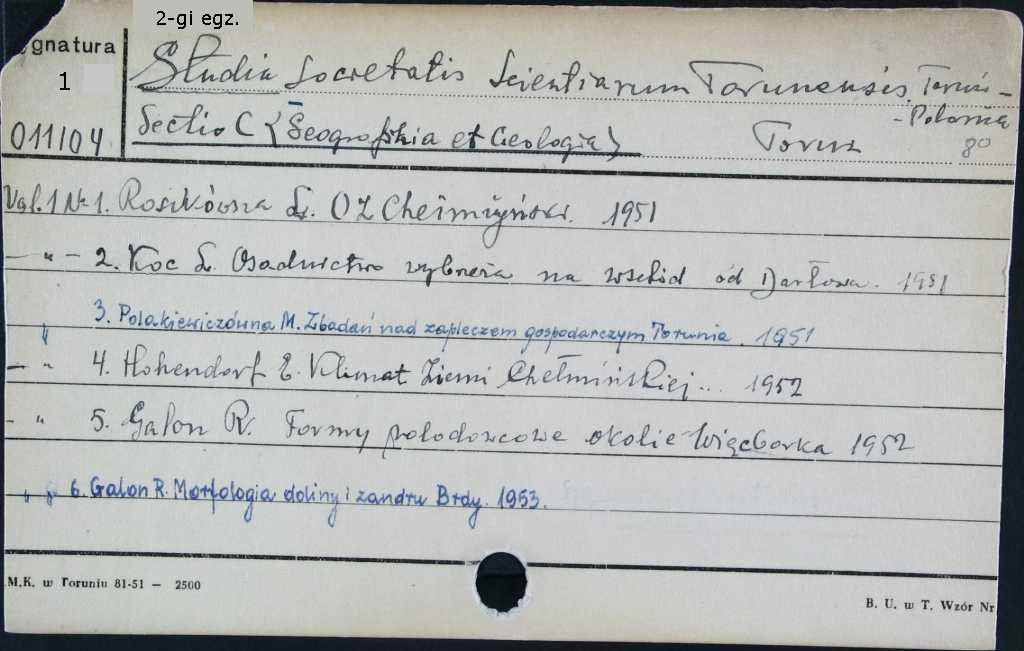 2-gi egz.
ygnatura
1
Studia Societatis Scientiarum Torunensis. Toruń -
- Polonia
011104
Sectio C (Geographia et Geologia) Toruń 8°
Vol. 1 Nr 1. Rosikówna L. O Z Chełmżyński. 1951
— " — 2. Koc L. Osadnictwo wybrzeża na wschód od Darłowa. 1951
" 3. Polakiewiczówna M. Z badań nad zapleczem gospodarczym Torunia. 1951
— " 4. Hohendorf E. Klimat Ziemi Chełmińskiej... 1952
- " 5. Galon R. Formy polodowcowe okolic Więcborka 1952
" " 6. Galon R. Morfologia doliny i zandru Brdy. 1953.
M.K. w Toruniu 81-51 — 2500
B. U. w T. Wzór Nr